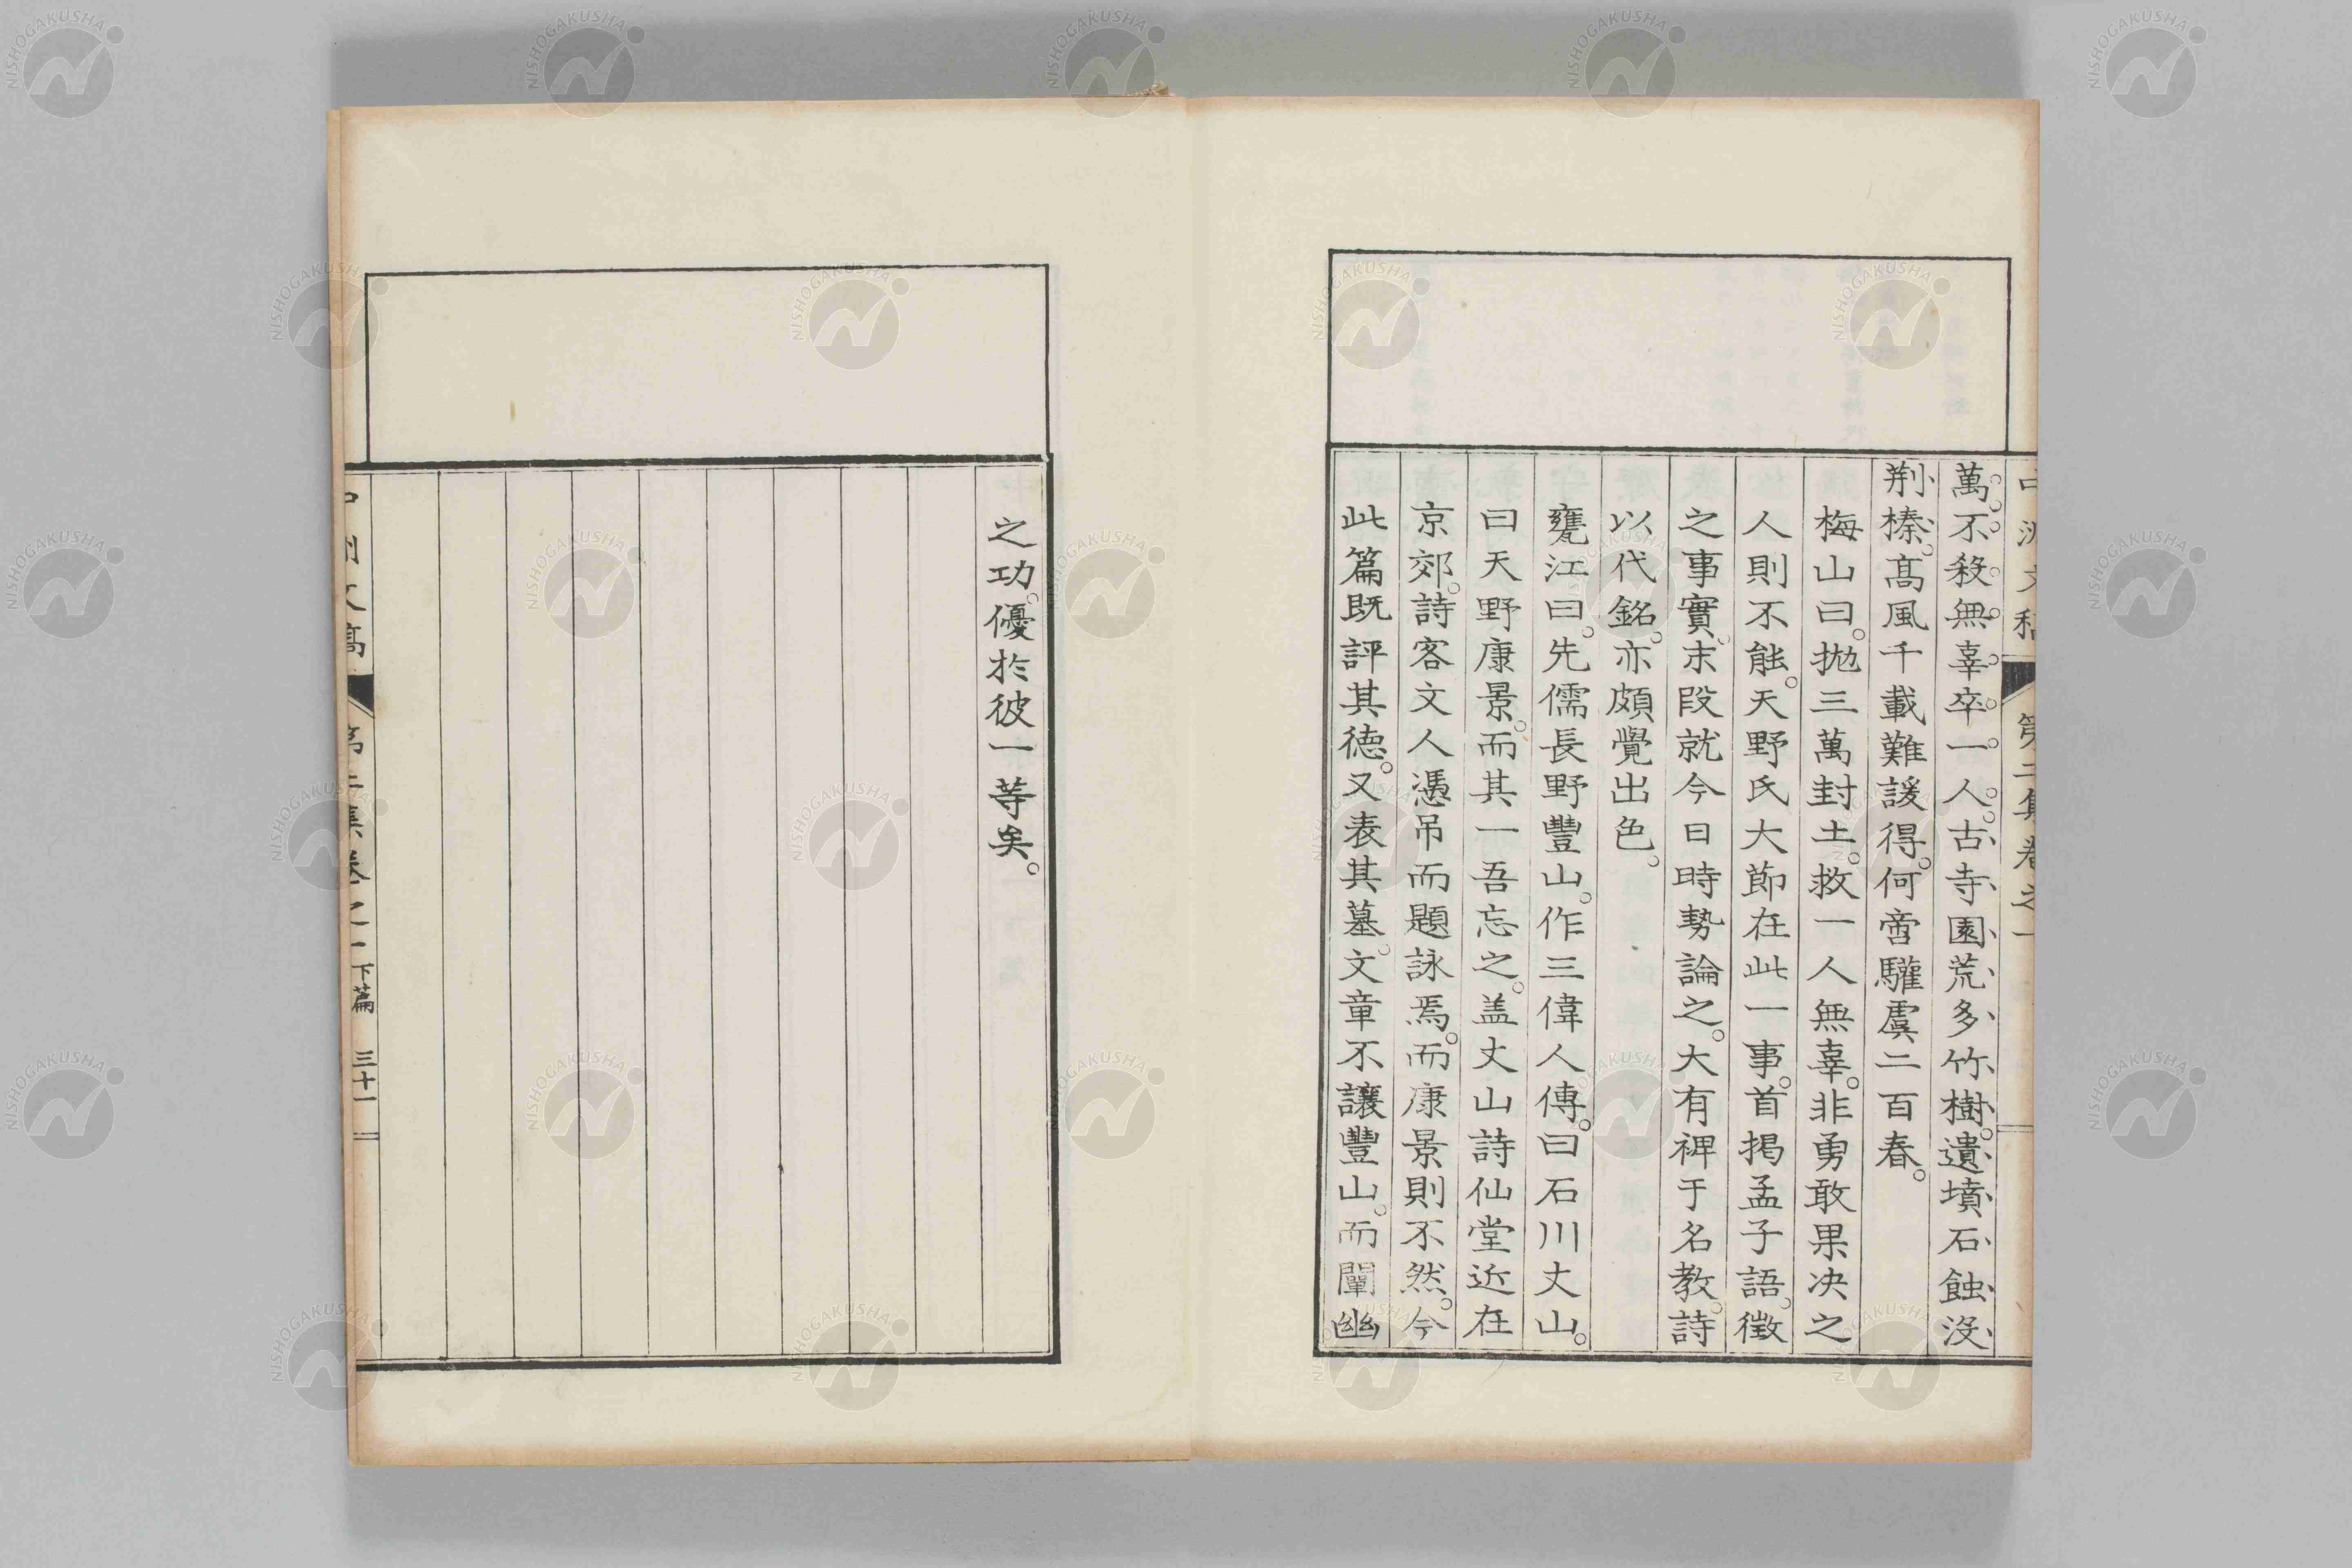 中洲文稿 第二集卷之一
萬不殺無辜卒一人古寺園荒多竹樹遺墳石蝕沒
荆榛高風千載難諼得何啻驩虞二百春
梅山曰抛三萬封土救一人無辜非勇敢果决之
人則不能天野氏大節在此一事首掲孟子語徵
之事實末段就今日時勢論之大有裨于名教詩
以代銘亦頗覺出色
甕江曰先儒長野豐山作三偉人傳曰石川丈山
曰天野康景而其一吾忘之盖丈山詩仙堂近在
京郊詩客文人憑吊而題詠焉而康景則不然今
此篇既評其德又表其墓文章不讓豐山而闡幽
之功優於彼一等矣
中洲文稿 第二集卷之一 下篇 三十一
NISHOGAKUSHA